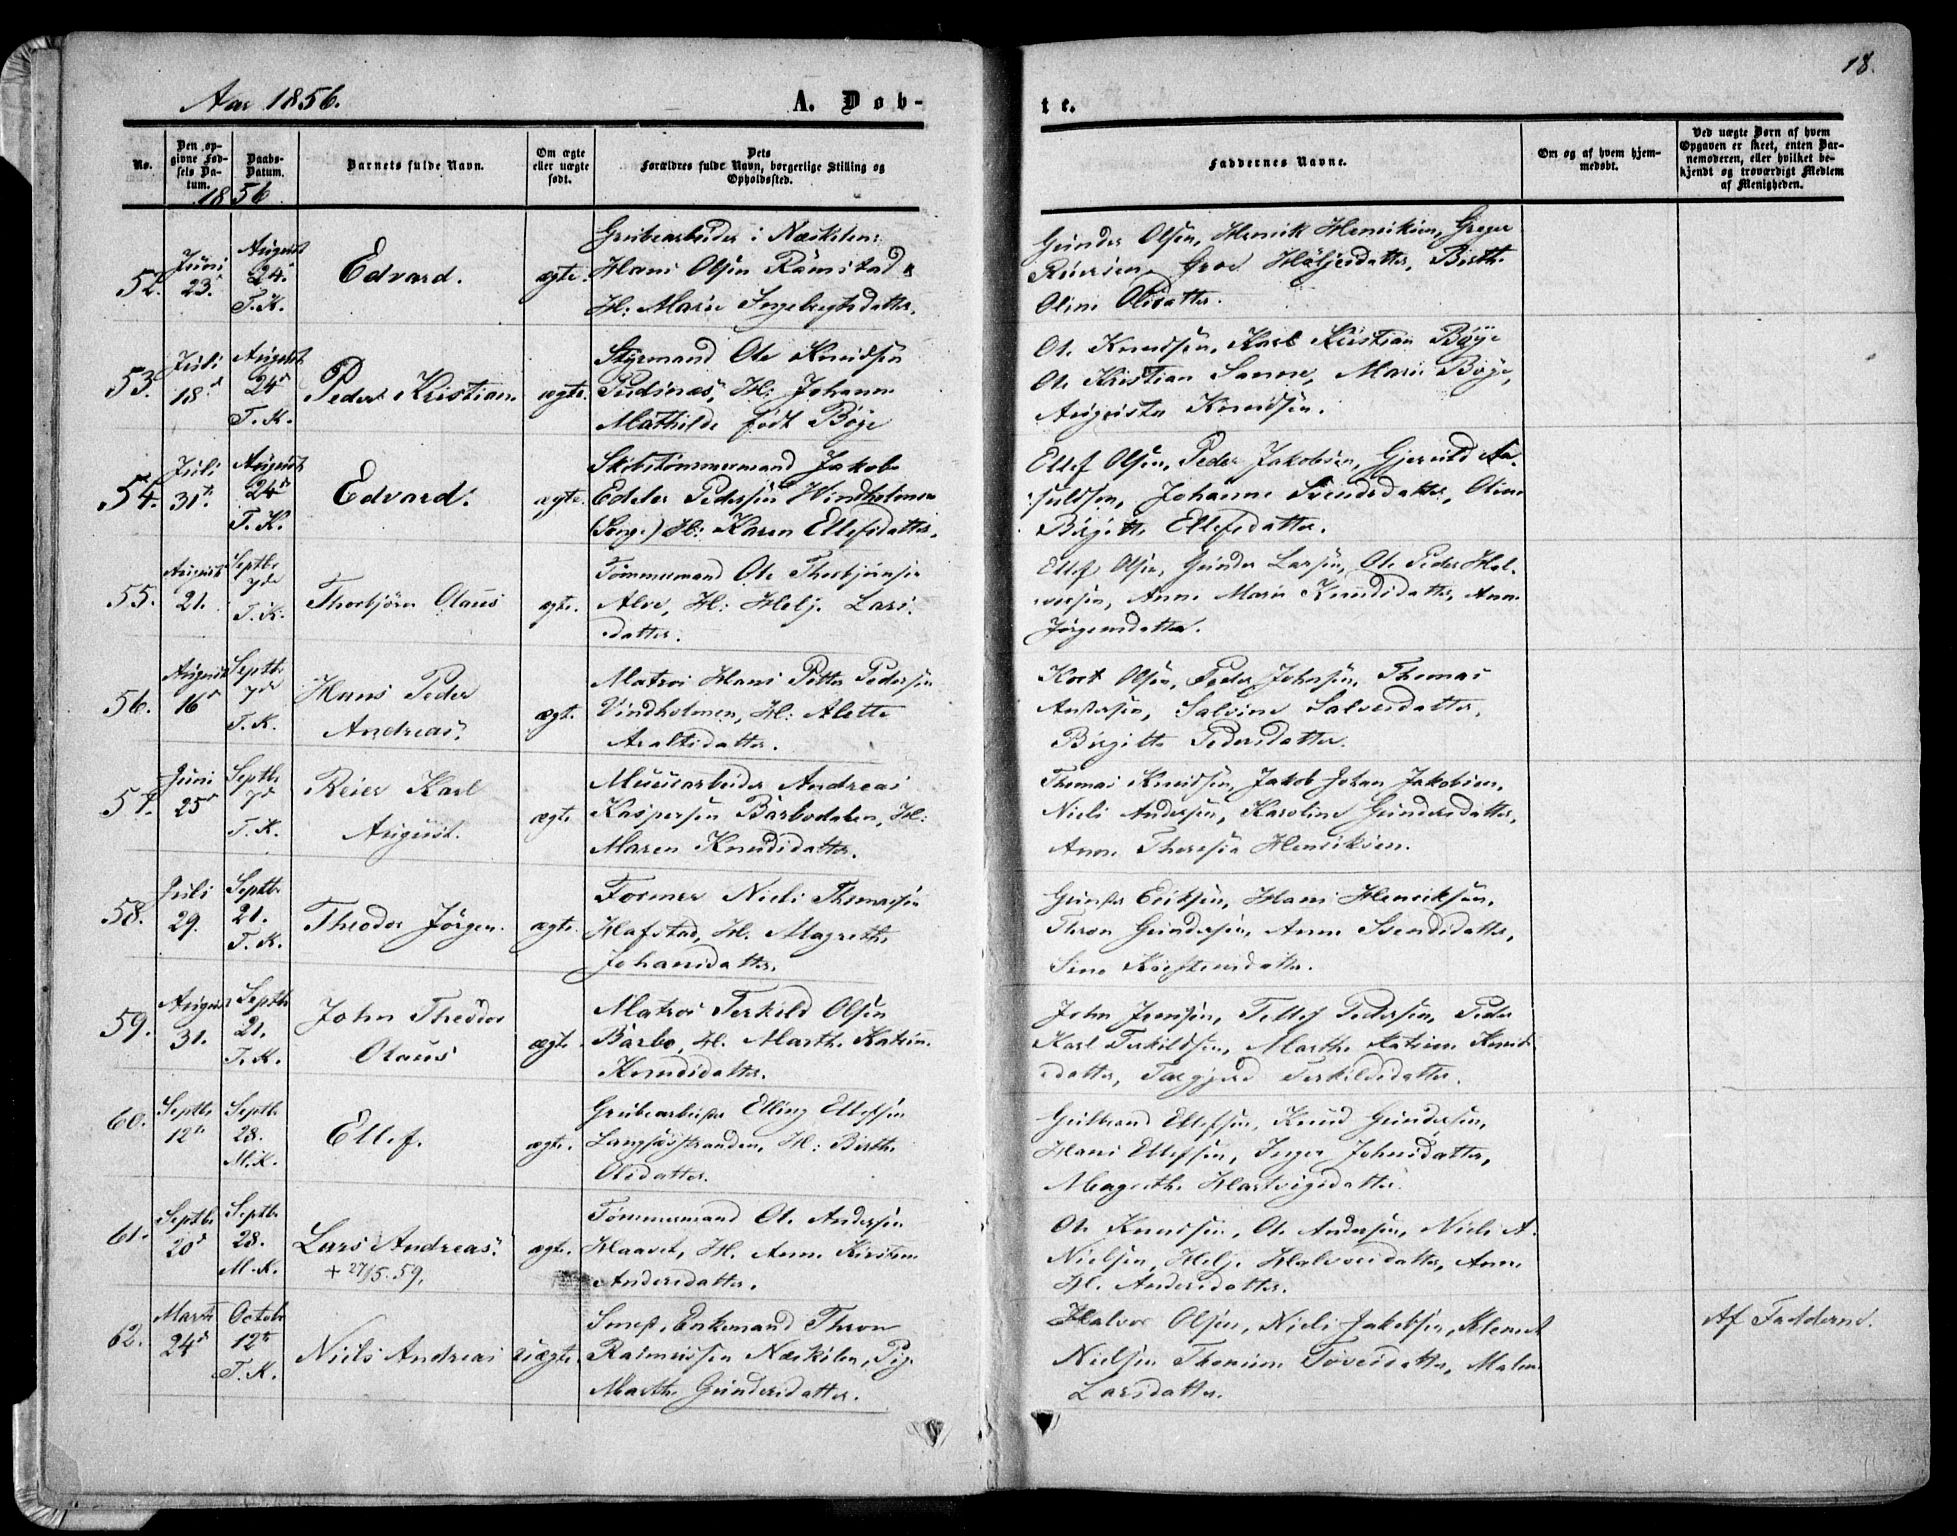 Aar 1856.
A. Døb-
te.
18.
No.
Den op-
givne Fød-
sels Da-
tum.
Daabs-
Datum.
Barnets fulde Navn.
Om ægte
eller uægte
født.
Dets
Forældres fulde Navn, borgerlige Stilling og
Opholdssted.
Faddernes Navne.
Om og af hvem hjem-
medøbt.
Ved uægte Børn af hvem
Opgaven er skeet, enten Bar-
nemoderen, eller hvilket be-
kjendt og troværdigt Medlem
af Menigheden.
1856
52.
Juni
23.
August
24.
T.K.
Edvard.
ægte.
Grubearbeider i Næskilen:
Hans Olsen Ramstad &
H: Marie Ingebregtsdatter.
Gunder Olsen, Henrik Henriksen, Greger
Reiersen, Groe Høljesdatter, Birthe
Oline Olsdatter.
53.
Juli
18d
August
24d
T.K.
Peder Kristian.
ægte.
Styrmand Ole Knudsen
Pudsnæs, H: Johanne
Mathilde født Bøge
Ole Knudsen, Karl Kristian Bøge
Ole Kristian Sanne, Marie Bøge,
Augusta Knudsen.
54.
Juli
31te
August
24d
T.K.
Edvard.
ægte.
Skibstømmermand Jakob
Edeler Pedersen Windholmen
(Songe) H: Karen Ellefsdatter.
Ellef Olsen, Peder Jakobsen, Gjeruld Aa-
suldsen, Johanne Svendsdatter, Oline
Birgitte Ellefsdatter.
55.
August
21.
Septbr
7de
T.K.
Thorbjørn Olaus
ægte.
Tømmermand Ole Thorbjørnsen
Alve, H: Helje Lars-
datter.
Ellef Olsen, Gunder Larsen, Ole Peder Hal-
vorsen, Anne Marie Knudsdatter, Anne
Jørgensdatter.
56.
August
16d
Septbr
7de
T.K.
Hans Peder
Andreas.
ægte.
Matros Hans Petter Pedersen
Vindholmen, H: Alette
Araltsdatter.
Kort Olsen, Peder Johnsen, Thomas
Andersen, Salvine Salvesdatter,
Birgitte Pedersdatter.
57.
Juni
25d
Septbr
7d
T.K.
Reier Karl
August.
ægte
Muurarbeider Andreas
Kaspersen Barbodalen, H:
Maren Knudsdatter.
Thomas Knudsen, Jakob Johan Jakobsen,
Niels Andersen, Karoline Gundersdatter,
Anne Theresia Henriksen.
58.
Juli
29.
Septbr
21.
T.K.
Theodor Jörgen.
ægte.
Former Niels Thomassen
Hafstad, H. Magrethe
Johansdatter.
Gunder Eriksen, Hans Henriksen,
Thron Gundersen, Anne Svendsdatter,
Sine Kristensdatter.
59.
August
31.
Septbr
21.
T.K.
John Theodor
Olaus
ægte.
Matros Terkild Olsen
Barbo, H. Marthe Katrine
Knudsdatter.
John Jensen, Tellef Pedersen, Peder
Karl Terkildsen, Marthe Katrine Knuds-
datter, Targjerd Terkildsdatter.
60.
Septbr
12te
Septbr
28.
M.K.
Ellef.
ægte.
Grubearbeider Elling Ellefsen
Langsæstranden, H: Birthe
Olsdatter.
Gulbrand Ellefsen, Knud Gundersen,
Hans Ellefsen, Inger Johnsdatter,
Magrethe Hartvigsdatter.
61.
Septbr
20d
Septbr
28.
M.K.
Lars Andreas.
+ 27/5. 59.
ægte.
Tømmermand Ole Andersen
Haavet, H. Anne Kirstine
Andersdatter.
Ole Knudsen, Ole Andersen, Niels A.
Nielsen, Helje Halvorsdatter, Anne
H. Andersdatter.
62.
Marts
24d
Octobr
12te
T.K.
Niels Andreas
uægte.
Smed, Enkemand Thron
Rasmussen Næskilen, Pige
Marthe Gundersdatter.
Halvor Olsen, Niels Jakobsen, Klemet
Nielsen Thomine Tovesdatter, Malene
Larsdatter.
Af Fadderne.